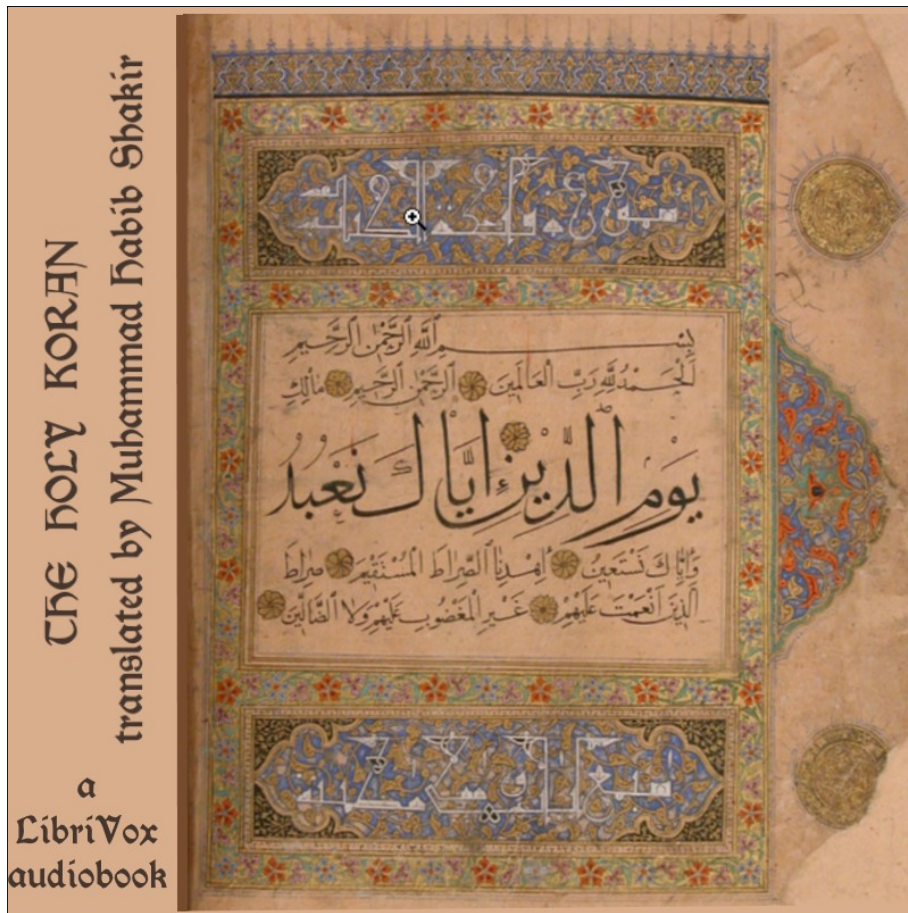 THE HOLY KORAN
translated by Muhammad Habib Shakir
a
LibriVox
audiobook
بِسْمِ اللَّهِ الرَّحْمٰنِ الرَّحِيمِ
الْحَمْدُ لِلَّهِ رَبِّ الْعَالَمِينَ الرَّحْمٰنِ الرَّحِيمِ مَالِكِ
يَوْمِ الدِّينِ اِيَّاكَ نَعْبُدُ
وَاِيَّاكَ نَسْتَعِينُ اِهْدِنَا الصِّرَاطَ الْمُسْتَقِيمَ صِرَاطَ
الَّذِينَ اَنْعَمْتَ عَلَيْهِمْ غَيْرِ الْمَغْضُوبِ عَلَيْهِمْ وَلَا الضَّالِّينَ